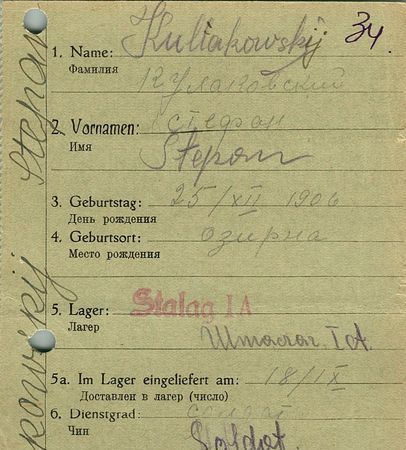 34
1. Name: Kuliakowskij
Фамилия Кулаковский
2. Vornamen: Стефан
Имя Stepan
3. Geburtstag: 25/XII 1906
День рождения
4. Geburtsort: Озирна
Место рождения
5. Lager: Stalag IA
Лагер Шталаг IA
5a. Im Lager eingeliefert am: 18/IX
Доставлен в лагер (число)
6. Dienstgrad: солдат
Чин Soldat
Stepan